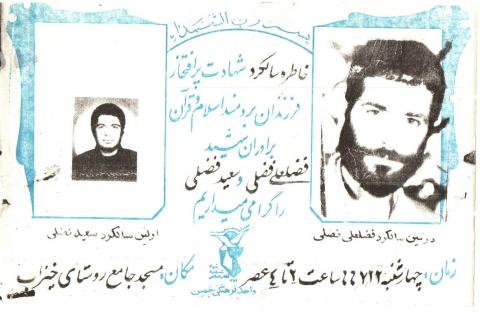 بسم رب الشهداء
خاطره سالگرد شهادت پرافتخار
فرزندان برومند اسلام و قرآن
برادران شهید
فضلعلی فضلی و سعید فضلی
را گرامی میداریم
دومین سالگرد فضلعلی فضلی
اولین سالگرد سعید فضلی
زمان: چهارشنبه ساعت ۲ تا ۴ عصر
مکان: مسجد جامع روستای خیزاب
واحد فرهنگی خمین